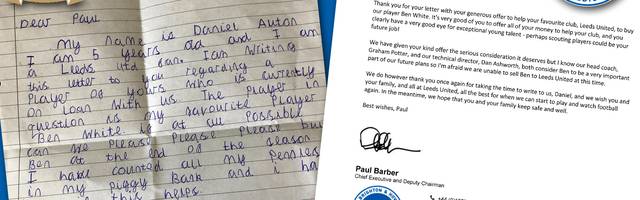 Dear Paul
My name is Daniel Auton
I am 5 years old and I am
a Leeds utd fan. I am Writing
this letter to you regarding a
Player of yours who is currently
on Loan With us The Player in
question is my favourite Player
Ben White is at all Possible
can we Please Please Please buy
Ben at the end of the season
I have counted all my Pennies
in my Piggy Bank and i ha
this helps
Thank you for your letter with your generous offer to help your favourite club, Leeds United, to buy
our player Ben White. It's very good of you to offer all of your money to help your club, and you
clearly have a very good eye for exceptional young talent - perhaps scouting players could be your
future job!
We have given your kind offer the serious consideration it deserves but I know our head coach,
Graham Potter, and our technical director, Dan Ashworth, both consider Ben to be a very important
part of our future plans so I'm afraid we are unable to sell Ben to Leeds United at this time.
We do however thank you once again for taking the time to write to us, Daniel, and we wish you and
your family, and all at Leeds United, all the best for when we can start to play and watch football
again. In the meantime, we hope that you and your family keep safe and well.
Best wishes, Paul
Paul Barber
Chief Executive and Deputy Chairman
BRIGHTON & HOVE